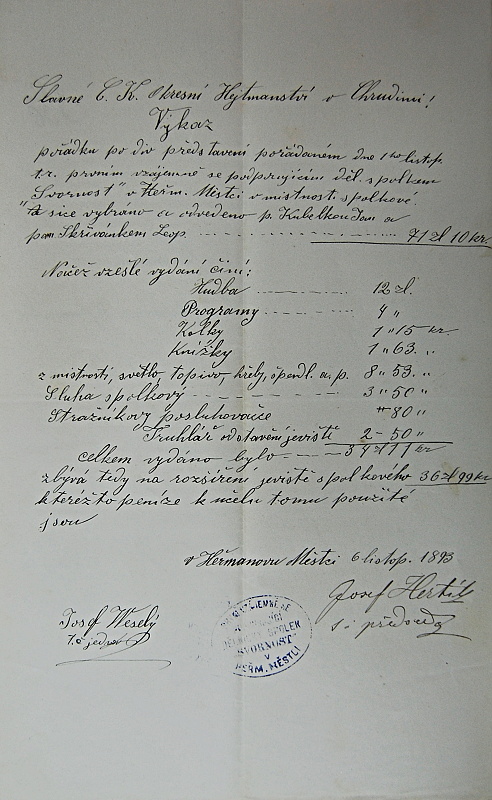 Slavné C. K. Okresní Hejtmanství v Chrudimi!
Výkaz
pořádku po div představení pořádaném dne 1ho listop.
t.r. prvním vzájemně se podporujícím děl. spolkem
"Svornost" v Heřm. Městci v místnosti spolkové.
a sice vybráno a odvedeno p. Kubelkou Jan a
pan Skřivánkem Leop. 71 zl 10 kr.
Načež vzešlé vydání činí:
Hudba 12 zl.
Programy 4 "
Kolky 1 " 15 kr
Knížky 1 " 63 "
z místností, světlo, topivo, hřeby, špendl. a. p. 8 " 53 "
Sluha spolkový 3 " 50 "
Strážníkovy posluhovačce " 80 "
Truhlář od stavění jeviště 2 - 50 "
celkem vydáno bylo 34 zl 11 kr
zbývá tedy na rozšíření jeviště spolkového 36 zl 99 kr
kteréžto peníze k účelu tomu použité
jsou
v Heřmanovu Městci 6 listop. 1893
Josef Hertík
t. č. předseda
Josef Weselý
t. č. jednat
VZÁJEMNĚ SE
DĚLNICKÝ SPOLEK
"SVORNOST"
V
HEŘM. MĚSTCI